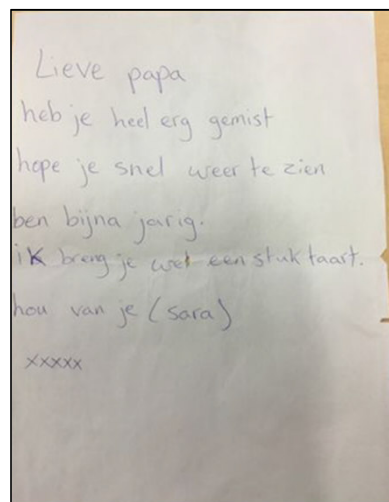 Lieve papa
heb je heel erg gemist
hope je snel weer te zien
ben bijna jarig.
ik breng je wel een stuk taart.
hou van je (sara)
xxxxx